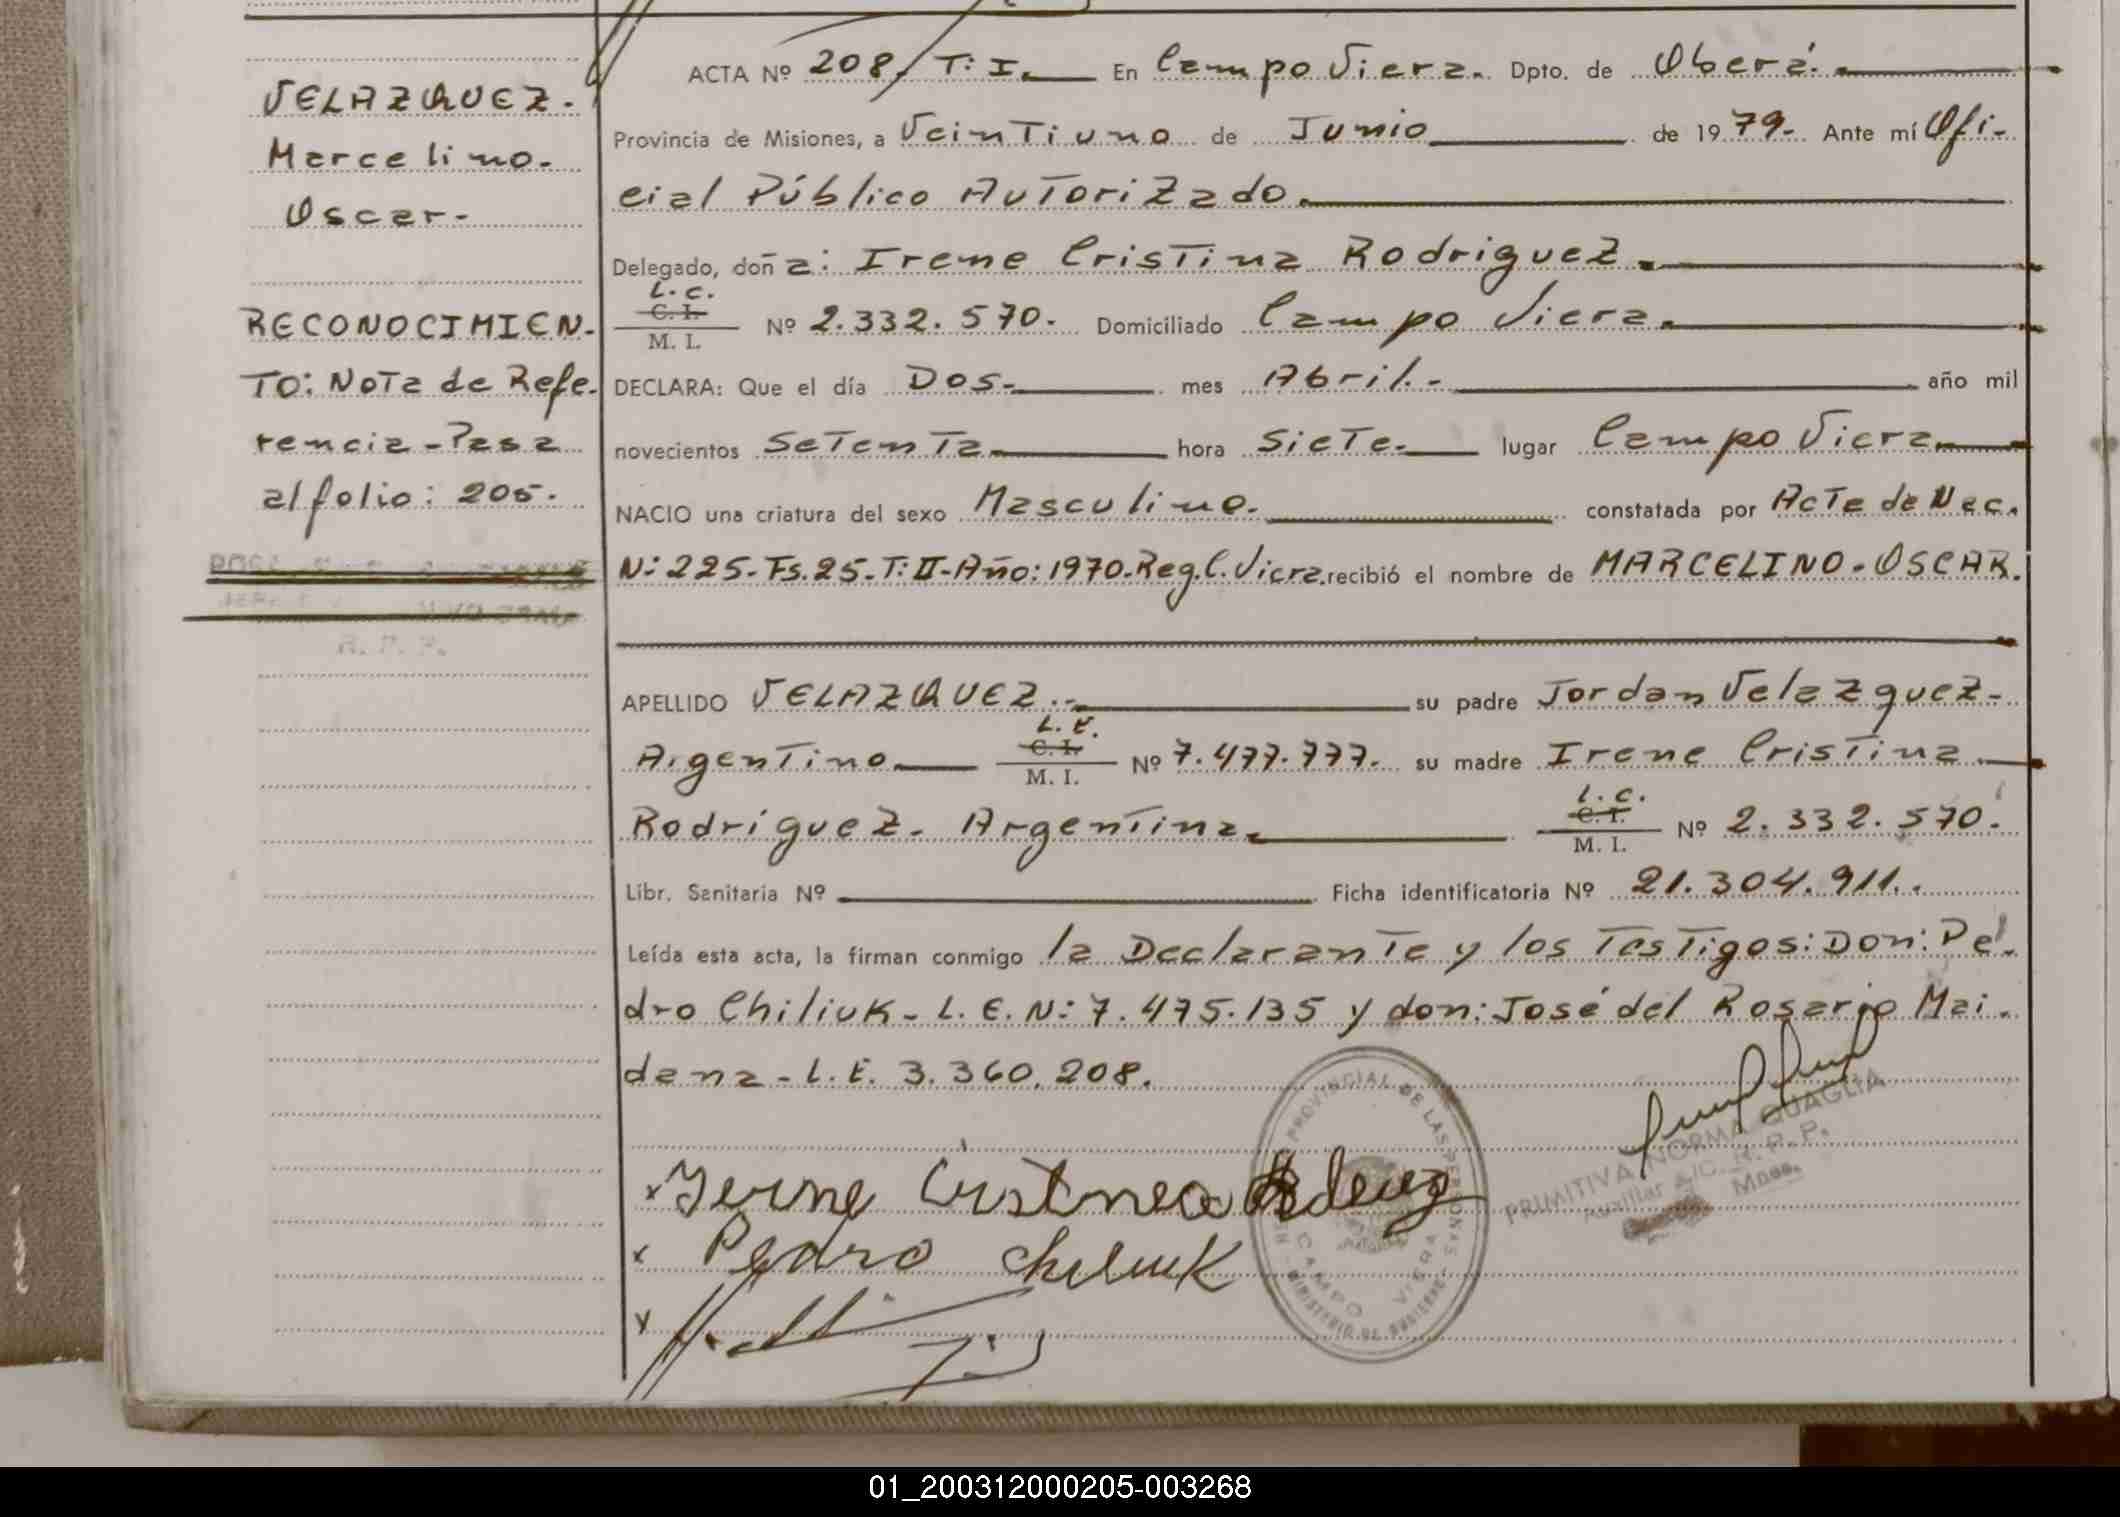 VELAZQUEZ.
Marcelino.
Oscar-
RECONOCIMIEN-
TO: Nota de Refe-
rencia - Pasa
al folio: 205.
R. P. P.
ACTA Nº 208/ T: I. En Campo Viera. Dpto. de Oberá.
Provincia de Misiones, a Veintiuno de Junio de 1979.- Ante mí Ofi-
cial Público Autorizado.
Delegado, doña: Irene Cristina Rodriguez.
L.C.
C. I.
M. I. Nº 2.332.570. Domiciliado Campo Viera.
DECLARA: Que el día Dos.- mes Abril.- año mil
novecientos Setenta hora Siete. lugar Campo Viera.
NACIO una criatura del sexo Masculino. constatada por Acta de Nac.
N: 225-Fs.25-T: II-Año: 1970.Reg.C.Viera. recibió el nombre de MARCELINO-OSCAR.
APELLIDO VELAZQUEZ.- su padre Jordan Velazquez-
L.E.
Argentino C. I. Nº 7.477.777. su madre Irene Cristina
M. I.
L.C.
Rodríguez- Argentina. C. I. Nº 2.332.570.
M. I.
Libr. Sanitaria Nº Ficha identificatoria Nº 21.304.911.
Leída esta acta, la firman conmigo la Declarante y los Testigos: Don: Pe-
dro Chiliuk- L.E.N: 7.475.135 y don: José del Rosario Mai-
dana- L.E. 3.360.208.
PROVINCIAL DE LAS PERSONAS
CAMPO VIERA
MINISTERIO DE GOBIERNO
PRIMITIVA NORMA QUAGLIA
Auxiliar A/C. R. P. P.
Mnes.
x Irene Cristina
x Pedro Chiliuk
01_200312000205-003268